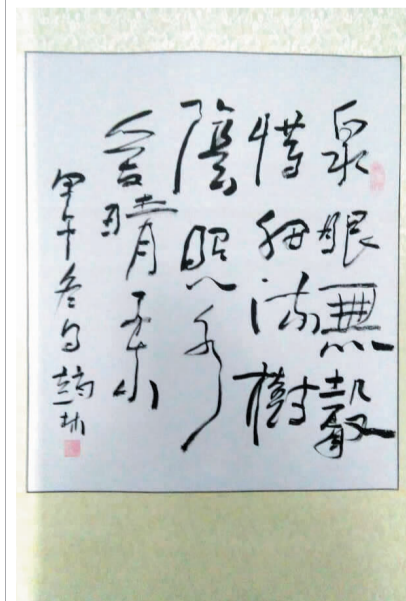 泉眼無聲
惜細流樹
陰照水
愛晴柔
甲午冬林